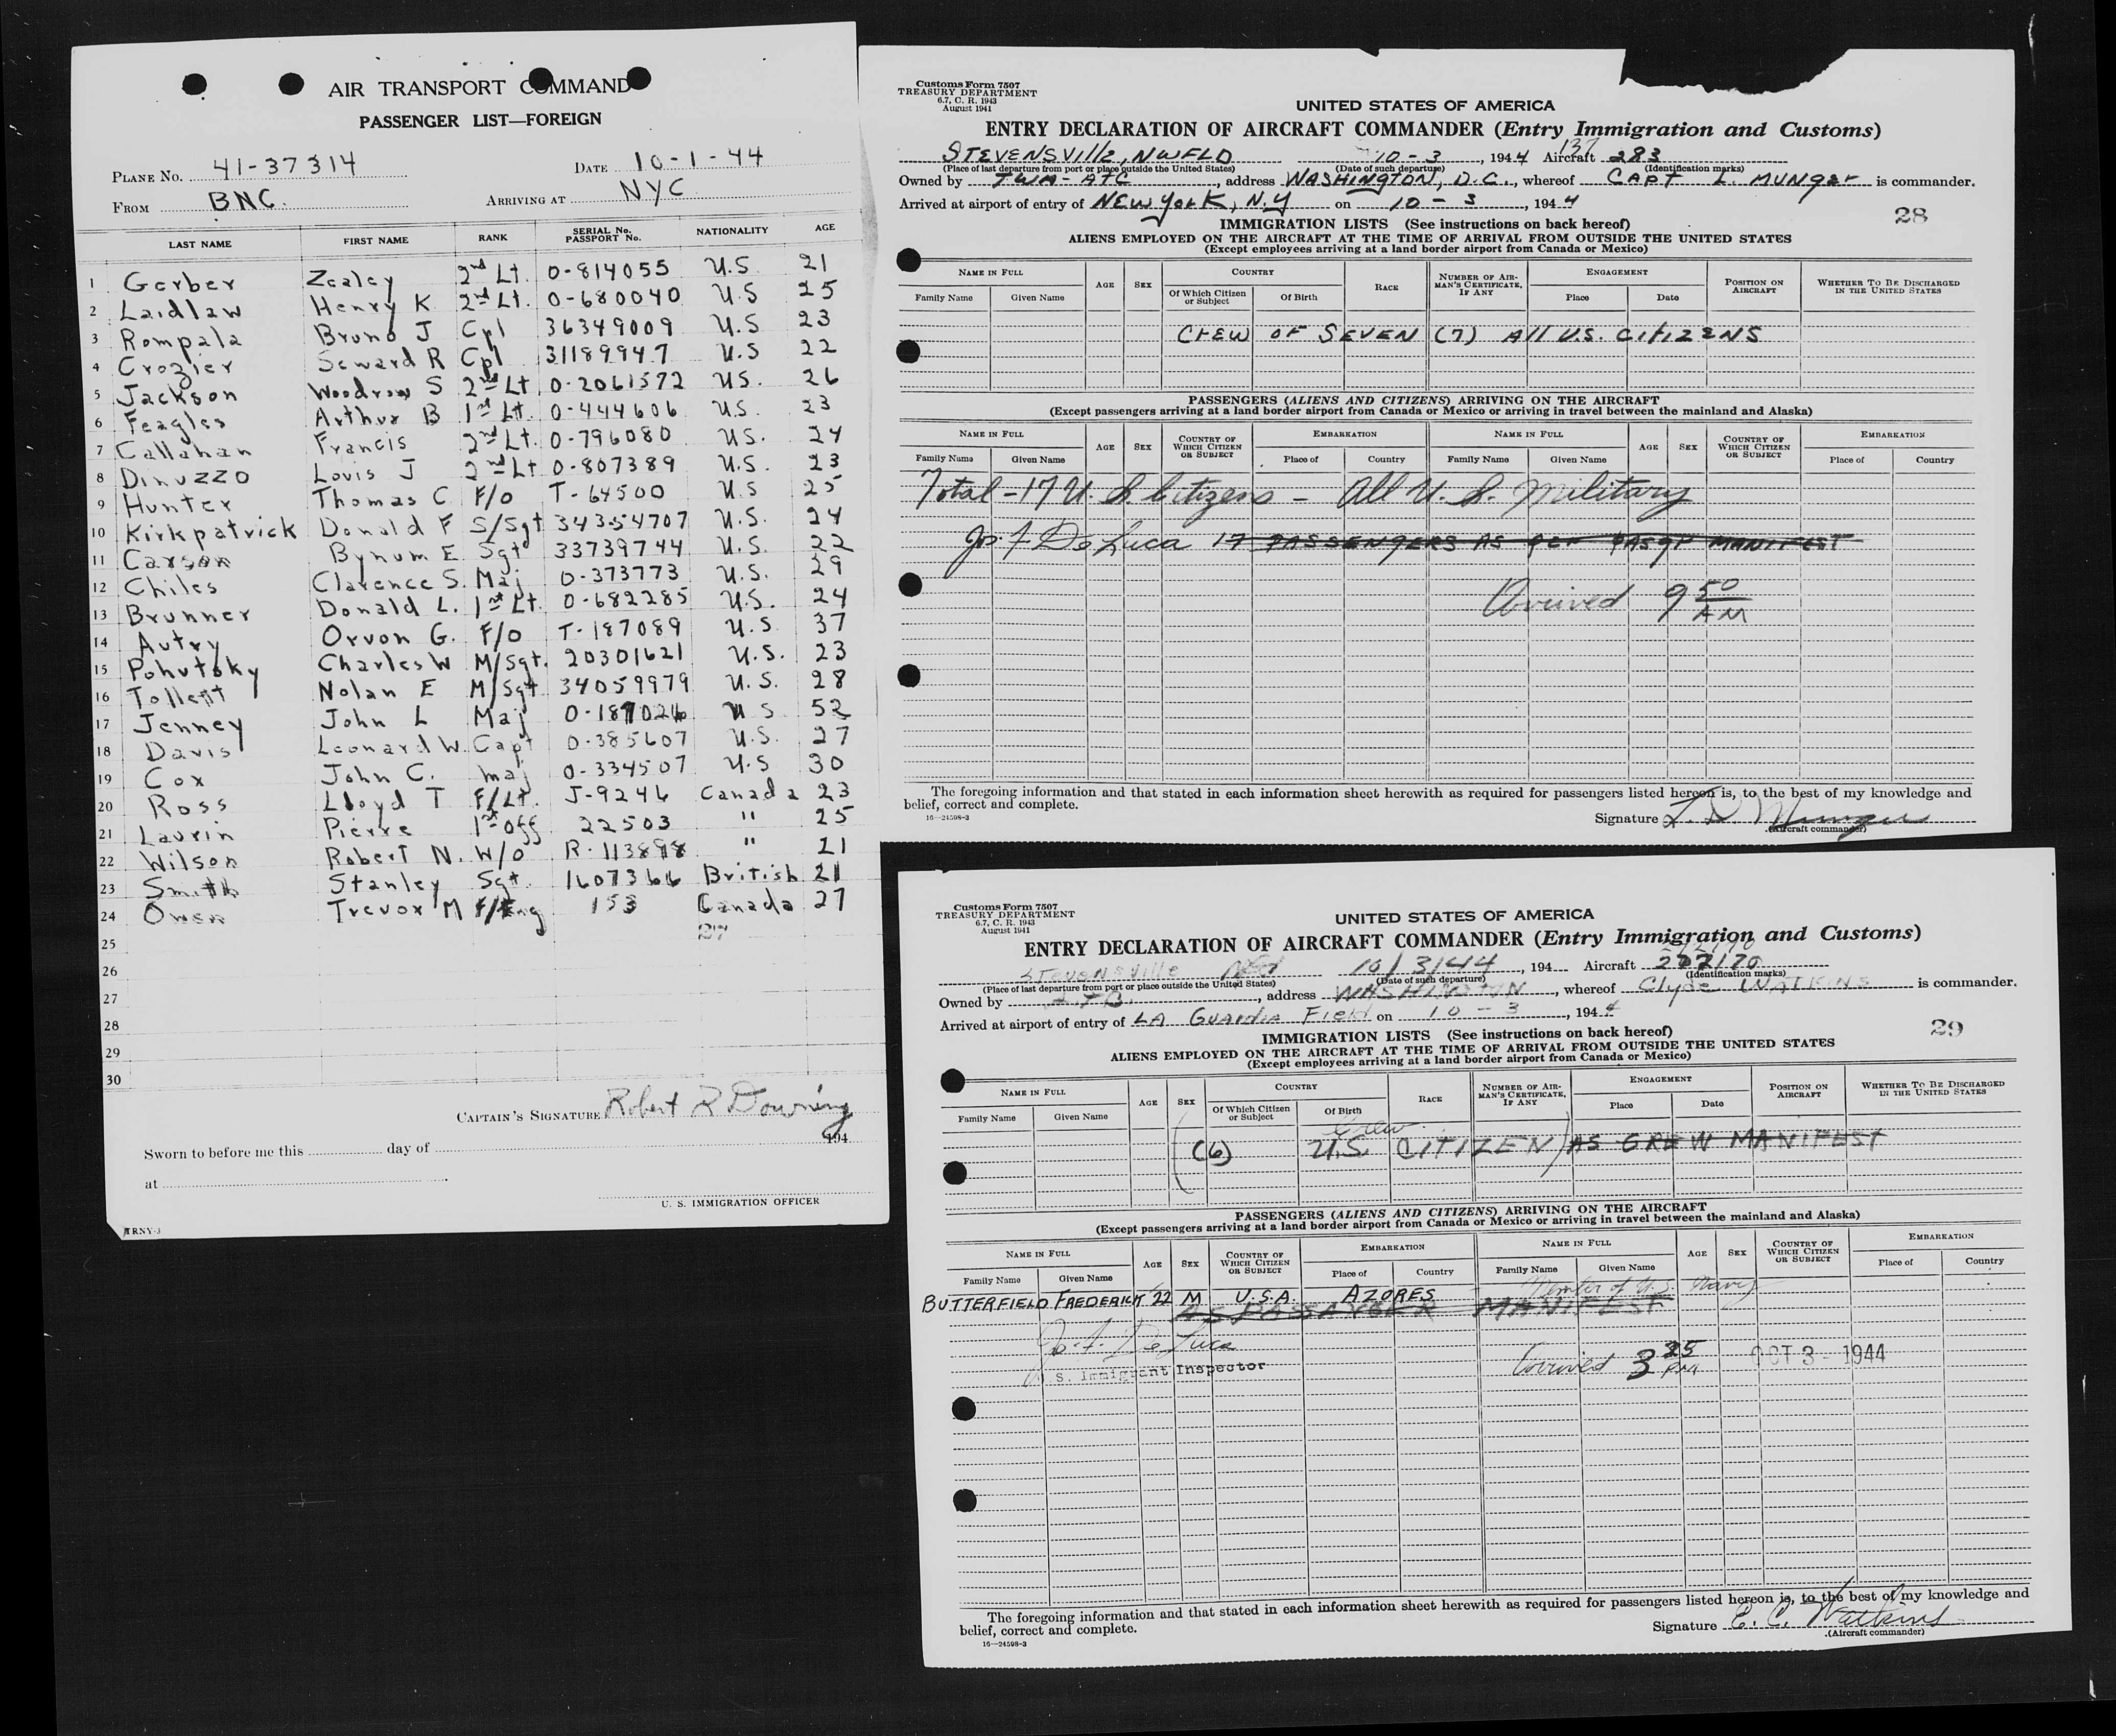 AIR TRANSPORT COMMAND
PASSENGER LIST—FOREIGN
PLANE NO. 41-37314 DATE 10-1-44
FROM BNC. ARRIVING AT NYC
LAST NAME FIRST NAME RANK SERIAL No. PASSPORT No. NATIONALITY AGE
1 Gerber Zealey 2nd Lt. O-814055 U.S. 21
2 Laidlaw Henry K 2nd Lt. O-680040 U.S 25
3 Rompala Bruno J Cpl 36349009 U.S 23
4 Crozier Seward R Cpl 31189947 U.S 22
5 Jackson Woodrow S 2nd Lt O-2061572 U.S. 26
6 Feagles Arthur B 1st Lt. O-444606 U.S. 23
7 Callahan Francis 2nd Lt. O-796080 U.S. 24
8 Dinuzzo Louis J 2nd Lt O-807389 U.S. 23
9 Hunter Thomas C F/O T-64500 U.S 25
10 Kirkpatrick Donald F S/Sgt 34354707 U.S. 24
11 Carson Bynum E Sgt 33739744 U.S. 22
12 Chiles Clarence S. Maj O-373773 U.S. 29
13 Brunner Donald L. 1st Lt. O-682285 U.S. 24
14 Autry Orvon G. F/O T-187089 U.S 37
15 Pohutsky Charles W M/Sgt. 20301621 U.S. 23
16 Tollett Nolan E M/Sgt 34059979 U.S. 28
17 Jenney John L Maj U S 52
18 Davis Leonard W. Capt O-385607 U.S. 27
19 Cox John C. Maj O-334507 U.S 30
20 Ross Lloyd T F/Lt. J-9246 Canada 23
21 Laurin Pierre 1st Off 22503 " 25
22 Wilson Robert N. W/O R-113898 " 21
23 Smith Stanley Sgt. 1607366 British 21
24 Owen Trevor M F/Eng 153 Canada 27
25 27
26
27
28
29
30
CAPTAIN'S SIGNATURE Robert R Downing
Sworn to before me this day of 194
at
U. S. IMMIGRATION OFFICER
TRNY-3
Customs Form 7507
TREASURY DEPARTMENT
6.7, C. R. 1943
August 1941
UNITED STATES OF AMERICA
ENTRY DECLARATION OF AIRCRAFT COMMANDER (Entry Immigration and Customs)
137
STEVENSVILLE, NWFLD 10-3, 1944 Aircraft 283
(Place of last departure from port or place outside the United States) (Date of such departure) (Identification marks)
Owned by TWA-ATC, address WASHINGTON, D.C., whereof CAPT L. MUNGER is commander.
Arrived at airport of entry of NEW YORK, N.Y on 10-3, 1944
28
IMMIGRATION LISTS (See instructions on back hereof)
ALIENS EMPLOYED ON THE AIRCRAFT AT THE TIME OF ARRIVAL FROM OUTSIDE THE UNITED STATES
(Except employees arriving at a land border airport from Canada or Mexico)
NAME IN FULL AGE SEX COUNTRY RACE NUMBER OF AIRMAN'S CERTIFICATE, IF ANY ENGAGEMENT POSITION ON AIRCRAFT WHETHER TO BE DISCHARGED IN THE UNITED STATES
Family Name Given Name Of Which Citizen or Subject Of Birth Place Date
CREW OF SEVEN (7) All U.S. CITIZENS
PASSENGERS (ALIENS AND CITIZENS) ARRIVING ON THE AIRCRAFT
(Except passengers arriving at a land border airport from Canada or Mexico or arriving in travel between the mainland and Alaska)
NAME IN FULL AGE SEX COUNTRY OF WHICH CITIZEN OR SUBJECT EMBARKATION NAME IN FULL AGE SEX COUNTRY OF WHICH CITIZEN OR SUBJECT EMBARKATION
Family Name Given Name Place of Country Family Name Given Name Place of Country
Total - 17 U. S. Citizens - All U. S. Military
Jo. F. De Luca 17 PASSENGERS AS PER PASGR MANIFEST
Arrived 9 50 AM
The foregoing information and that stated in each information sheet herewith as required for passengers listed hereon is, to the best of my knowledge and
belief, correct and complete.
16—24598-3
Signature L. D. Munger
(Aircraft commander)
Customs Form 7507
TREASURY DEPARTMENT
6.7, C. R. 1943
August 1941
UNITED STATES OF AMERICA
ENTRY DECLARATION OF AIRCRAFT COMMANDER (Entry Immigration and Customs)
STEVENSVILLE Nfld 10/3/44, 194 Aircraft 272170
(Place of last departure from port or place outside the United States) (Date of such departure) (Identification marks)
Owned by ATC, address WASHINGTON, whereof Clyde WATKINS is commander.
Arrived at airport of entry of LA GUARDIA FIELD on 10-3, 1944
29
IMMIGRATION LISTS (See instructions on back hereof)
ALIENS EMPLOYED ON THE AIRCRAFT AT THE TIME OF ARRIVAL FROM OUTSIDE THE UNITED STATES
(Except employees arriving at a land border airport from Canada or Mexico)
NAME IN FULL AGE SEX COUNTRY RACE NUMBER OF AIRMAN'S CERTIFICATE, IF ANY ENGAGEMENT POSITION ON AIRCRAFT WHETHER TO BE DISCHARGED IN THE UNITED STATES
Family Name Given Name Of Which Citizen or Subject Of Birth Place Date
Crew
(6) U.S. CITIZEN AS CREW MANIFEST
PASSENGERS (ALIENS AND CITIZENS) ARRIVING ON THE AIRCRAFT
(Except passengers arriving at a land border airport from Canada or Mexico or arriving in travel between the mainland and Alaska)
NAME IN FULL AGE SEX COUNTRY OF WHICH CITIZEN OR SUBJECT EMBARKATION NAME IN FULL AGE SEX COUNTRY OF WHICH CITIZEN OR SUBJECT EMBARKATION
Family Name Given Name Place of Country Family Name Given Name Place of Country
BUTTERFIELD FREDERICK 22 M U.S.A. AZORES Member of U.S. Navy
AS PASSANGER MANIFEST
Jo. F. De Luca
U.S. Immigrant Inspector
Arrived 3 25 PM OCT 3 - 1944
The foregoing information and that stated in each information sheet herewith as required for passengers listed hereon is, to the best of my knowledge and
belief, correct and complete.
16—24598-3
Signature E. C. Watkins
(Aircraft commander)